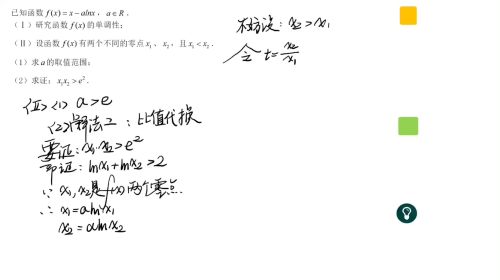 已知函数 f(x)=x−alnx，a∈R．
（Ⅰ）研究函数 f(x) 的单调性；
（Ⅱ）设函数 f(x) 有两个不同的零点 x₁、x₂，且 x₁<x₂．
（1）求 a 的取值范围；
（2）求证：x₁x₂>e²．
(Ⅱ) <1> a>e
(2) 解法二：比值代换
要证: x₁·x₂>e²
即证: lnx₁+lnx₂>2
∵ x₁,x₂是f(x)两个零点.
∴ x₁=alnx₁
x₂=alnx₂
不妨设: x₂>x₁
令 t=x₂/x₁